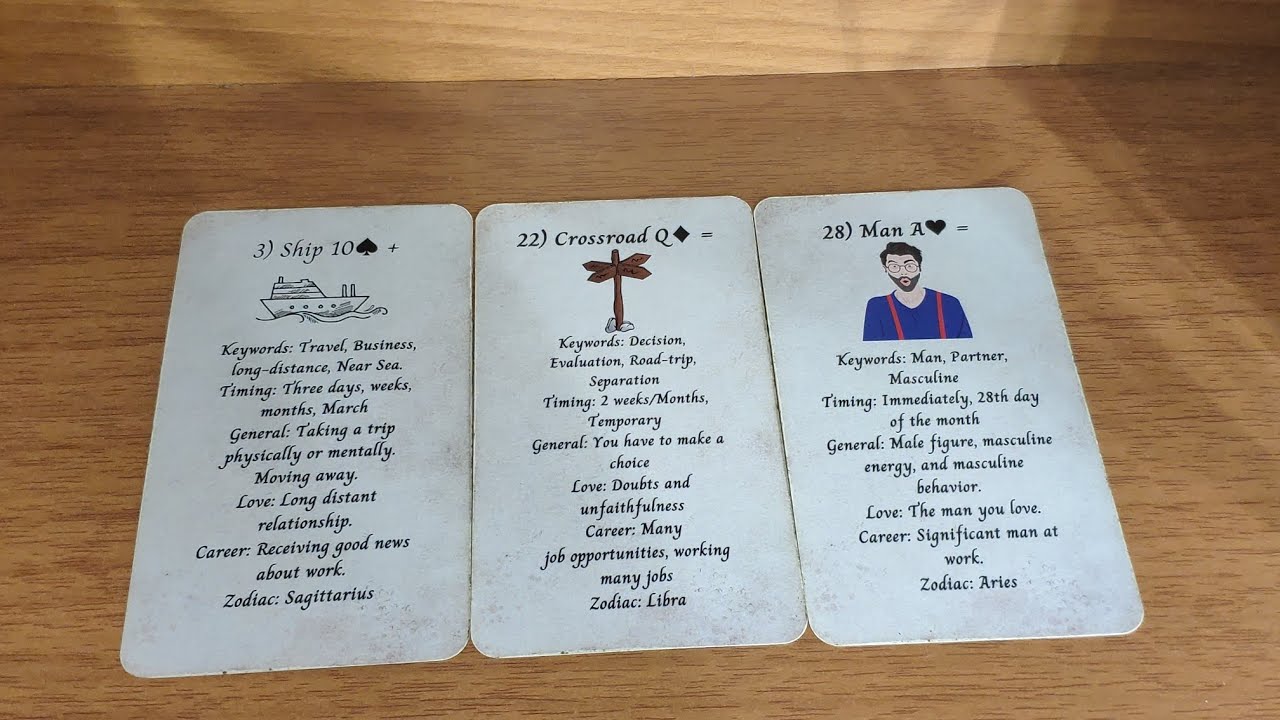 3) Ship 10♠ +
Keywords: Travel, Business,
long-distance, Near Sea.
Timing: Three days, weeks,
months, March
General: Taking a trip
physically or mentally.
Moving away.
Love: Long distant
relationship.
Career: Receiving good news
about work.
Zodiac: Sagittarius
22) Crossroad Q♦ =
Keywords: Decision,
Evaluation, Road-trip,
Separation
Timing: 2 weeks/Months,
Temporary
General: You have to make a
choice
Love: Doubts and
unfaithfulness
Career: Many
job opportunities, working
many jobs
Zodiac: Libra
28) Man A♥ =
Keywords: Man, Partner,
Masculine
Timing: Immediately, 28th day
of the month
General: Male figure, masculine
energy, and masculine
behavior.
Love: The man you love.
Career: Significant man at
work.
Zodiac: Aries